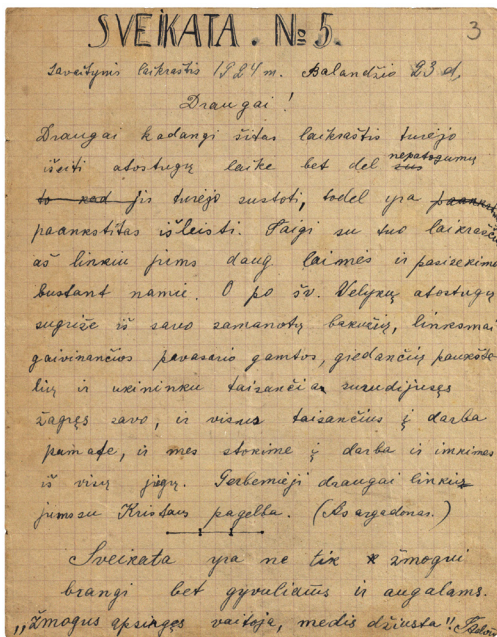 SVEIKATA. No 5.
3
savaitynis laikraštis 1924 m. Balandžio 23 d.
Draugai!
Draugai kadangi šitas laikraštis turėjo
išeiti atostugų laike bet del nepatogumų
to kad jis turėjo sustoti, todel yra
paankstitas išleisti. Taigi su tuo laikraščiu
aš linkiu jums daug laimės ir pasisekimo
bustant namie. O po šv. Velykų atostugų
sugrįže iš savo samanotų bakužių, linksmai
gaivinančios pavasario gamtos, giedančių paukšte-
lių ir ukininku taisančia surudijuses
žagręs savo, ir visus taisančius į darba
pamatę, ir mes stokime į darba ir imkimes
iš visų jiegų. Gerbemieji draugai linkiu
jums su Kristaus pagelba. (As argadonas.)
Sveikata yra ne tik žmogui
brangi bet gyvuliams ir augalams.
„Žmogus apsirgęs vaitoja, medis džiusta".